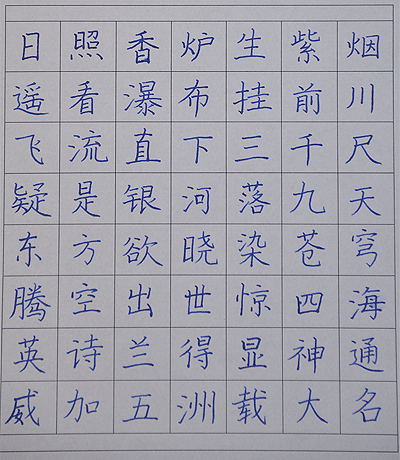 日照香炉生紫烟
遥看瀑布挂前川
飞流直下三千尺
疑是银河落九天
东方欲晓染苍穹
腾空出世惊四海
英诗兰得显神通
威加五洲载大名